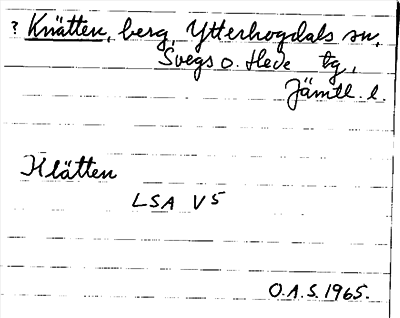 ? Knätten, berg, Ytterhogdals sn,
Svegs o. Hede tg,
Jämtl. l.
Klätten
LSA V5
O.A.S. 1965.